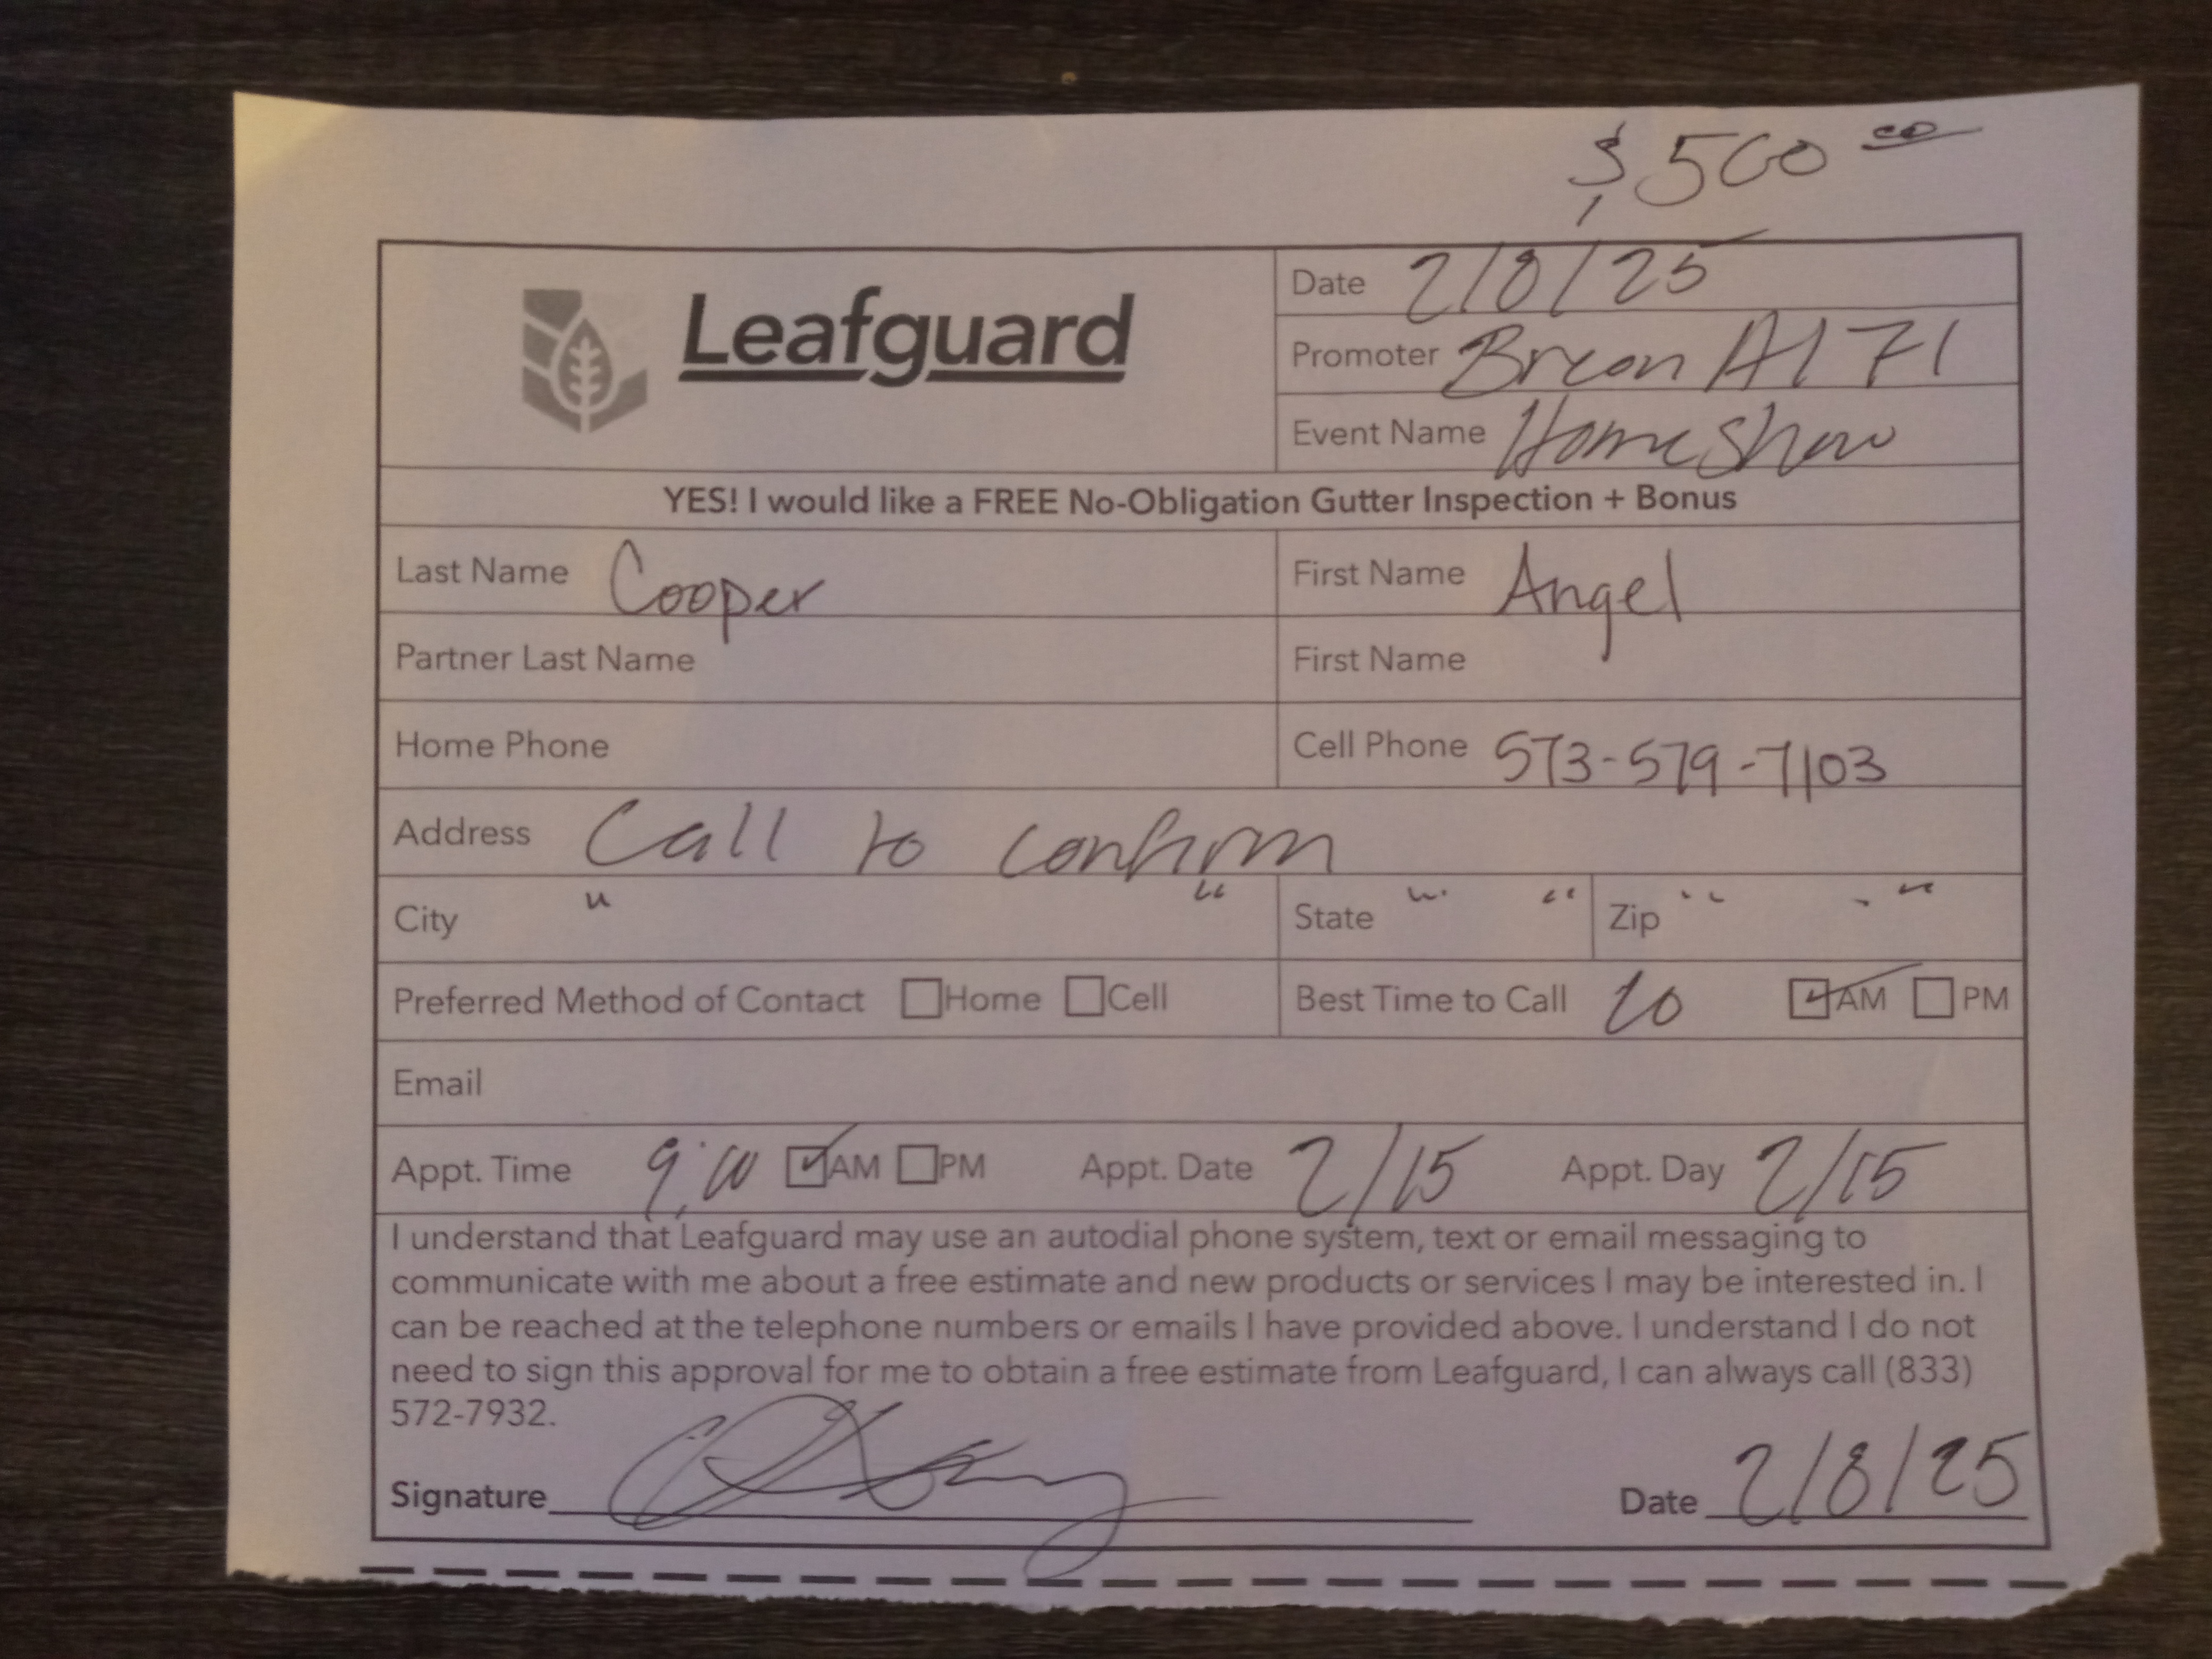 $500 00
Leafguard
Date 7/8/25
Promoter Bryan H 171
Event Name Home Show
YES! I would like a FREE No-Obligation Gutter Inspection + Bonus
Last Name Cooper First Name Angel
Partner Last Name First Name
Home Phone Cell Phone 573-579-7103
Address Call to Confirm
City " " State " " Zip " "
Preferred Method of Contact ☐Home ☐Cell Best Time to Call 10 ☑AM ☐PM
Email
Appt. Time ☑AM ☐PM Appt. Date 7/15 Appt. Day 7/15
I understand that Leafguard may use an autodial phone system, text or email messaging to
communicate with me about a free estimate and new products or services I may be interested in. I
can be reached at the telephone numbers or emails I have provided above. I understand I do not
need to sign this approval for me to obtain a free estimate from Leafguard, I can always call (833)
572-7932.
Signature Date 7/8/25